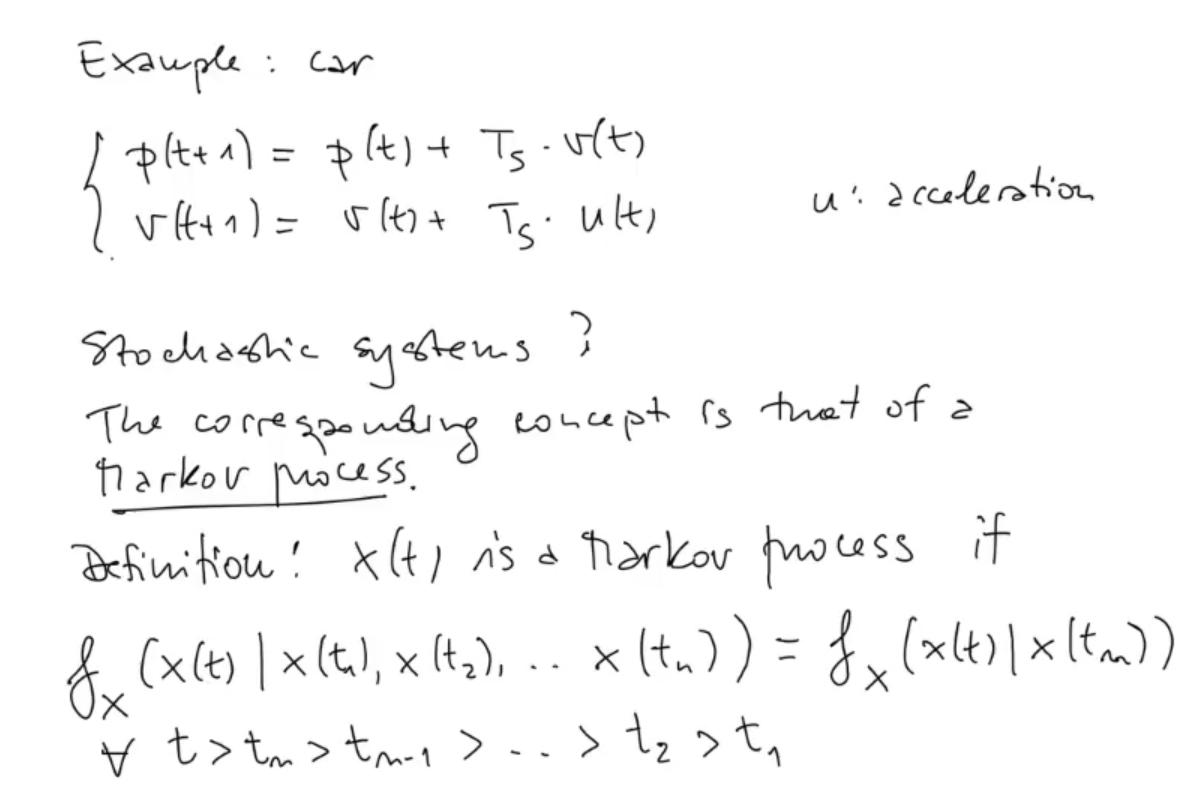 Example : car
p(t+1) = p(t) + Ts · v(t)
u : acceleration
v(t+1) = v(t) + Ts · u(t)
Stochastic systems ?
The corresponding concept is that of a
Markov process.
Definition : x(t) is a Markov process if
fₓ (x(t) | x(t₁), x(t₂), .. x(tₙ)) = fₓ (x(t) | x(tₙ))
∀ t > tₙ > tₙ₋₁ > .. > t₂ > t₁